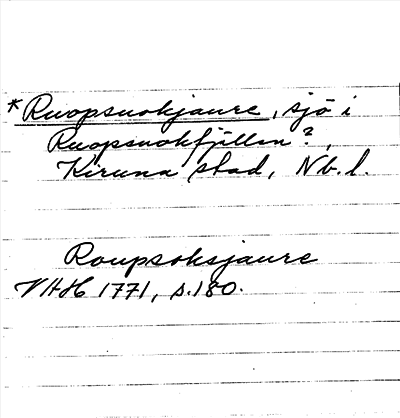 *Ruopsuokjaure, sjö i
Ruopsuokfjällen?,
Kiruna stad, Nb. l.
Roupsoksjaure
VAH 1771, s. 180.